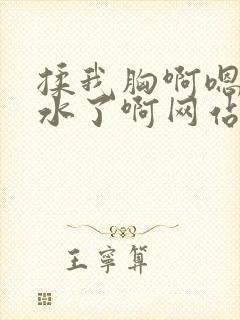 揉我胸啊嗯
水了啊网站
王寧算